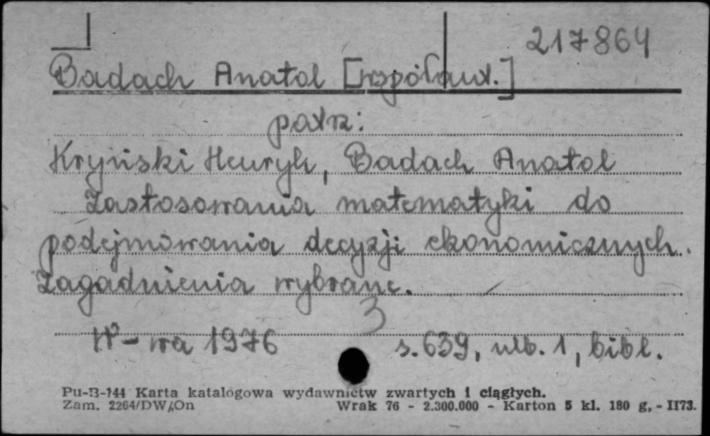 217864
Badach Anatol [współaut.]
patrz:
Kryński Henryk, Badach Anatol
Zastosowania matematyki do
podejmowania decyzji ekonomicznych.
Zagadnienia wybrane.
3
W-wa 1976 s. 639, nlb. 1, bibl.
Pu-B-144 Karta katalogowa wydawnictw zwartych i ciągłych.
Zam. 2264/DW/On Wrak 76 - 2.300.000 - Karton 5 kl. 180 g, - II73.